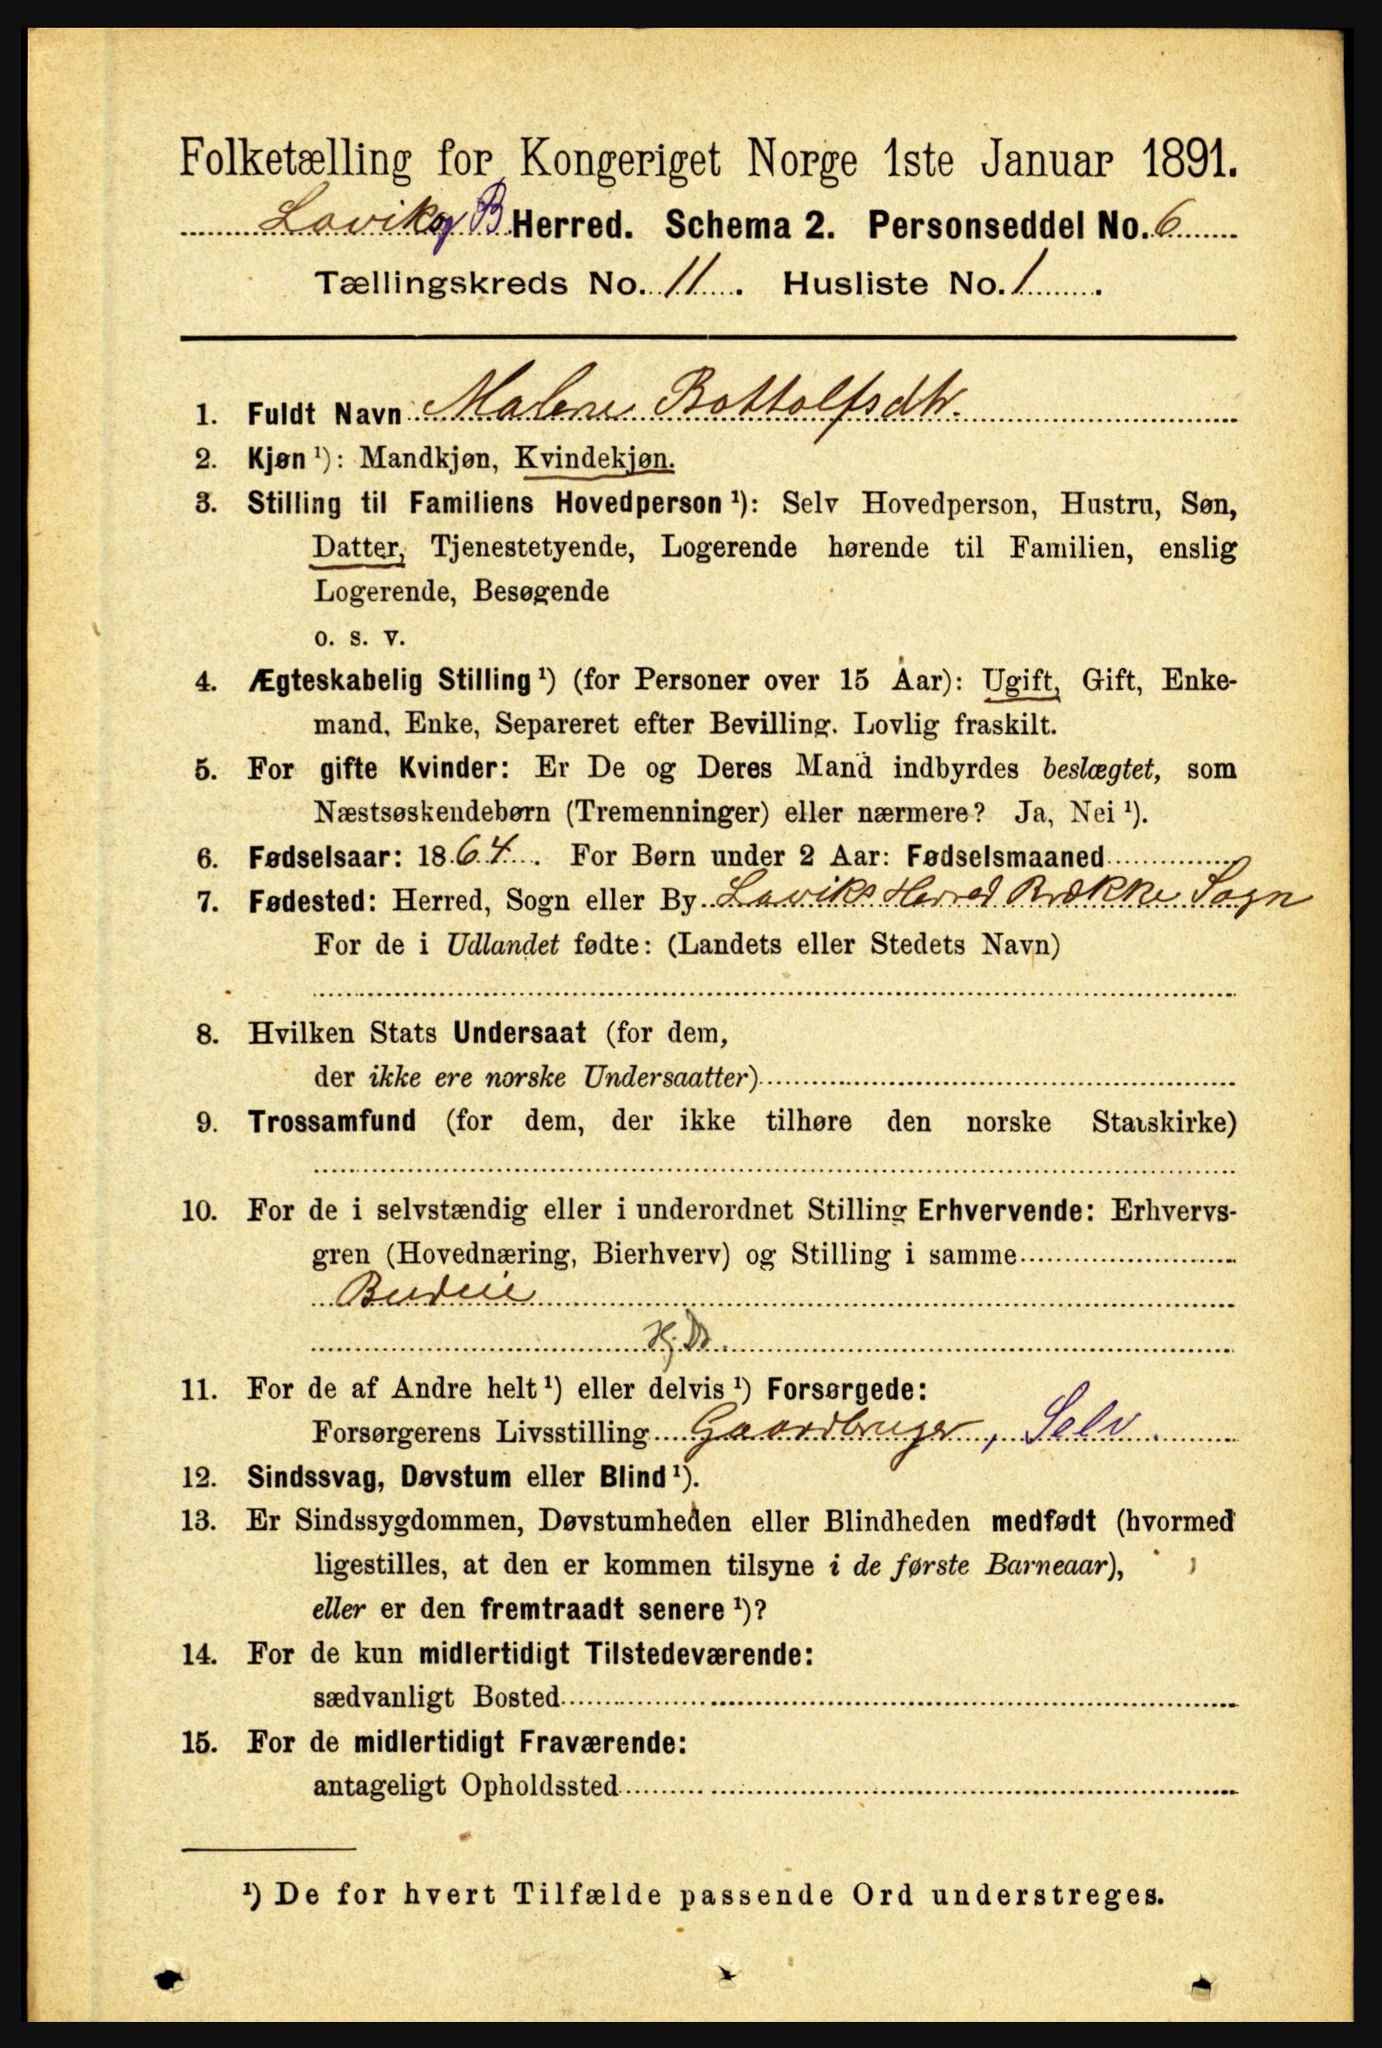 Folketælling for Kongeriget Norge 1ste Januar 1891.
Lavik og B Herred. Schema 2. Personseddel No. 6
Tællingskreds No. 11. Husliste No. 1.
1. Fuldt Navn Malene Bottolfsdtr.
2. Kjøn ¹): Mandkjøn, Kvindekjøn.
3. Stilling til Familiens Hovedperson ¹): Selv Hovedperson, Hustru, Søn,
Datter, Tjenestetyende, Logerende hørende til Familien, enslig
Logerende, Besøgende
o. s. v.
4. Ægteskabelig Stilling ¹) (for Personer over 15 Aar): Ugift, Gift, Enke-
mand, Enke, Separeret efter Bevilling. Lovlig fraskilt.
5. For gifte Kvinder: Er De og Deres Mand indbyrdes beslægtet, som
Næstsøskendebørn (Tremenninger) eller nærmere? Ja, Nei ¹).
6. Fødselsaar: 1864. For Børn under 2 Aar: Fødselsmaaned
7. Fødested: Herred, Sogn eller By Laviks Herred Brække Sogn
For de i Udlandet fødte: (Landets eller Stedets Navn)
8. Hvilken Stats Undersaat (for dem,
der ikke ere norske Undersaatter)
9. Trossamfund (for dem, der ikke tilhøre den norske Statskirke)
10. For de i selvstændig eller i underordnet Stilling Erhvervende: Erhvervs-
gren (Hovednæring, Bierhverv) og Stilling i samme
Budeie
11. For de af Andre helt ¹) eller delvis ¹) Forsørgede:
Forsørgerens Livsstilling Gaardbruger, Selv.
12. Sindssvag, Døvstum eller Blind ¹).
13. Er Sindssygdommen, Døvstumheden eller Blindheden medfødt (hvormed
ligestilles, at den er kommen tilsyne i de første Barneaar),
eller er den fremtraadt senere ¹)?
14. For de kun midlertidigt Tilstedeværende:
sædvanligt Bosted
15. For de midlertidigt Fraværende:
antageligt Opholdssted
¹) De for hvert Tilfælde passende Ord understreges.